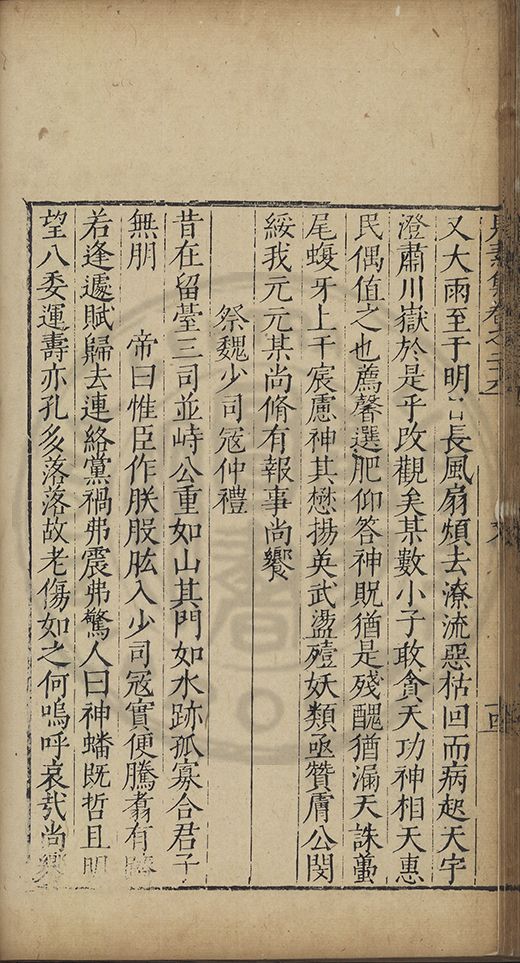 見素集卷之二十九
十四
又大雨至于明日長風扇煩去潦流惡枯回而病起天宇
澄肅川嶽於是乎改觀矣某數小子敢貪天功神相天惠
民偶值之也薦馨選肥仰答神貺猶是殘醜猶漏天誅蠆
尾蝮牙上干宸慮神其懋揚英武盪殪妖類亟贊膚公閔
綏我元元某尚脩有報事尚饗
祭魏少司冦仲禮
昔在留臺三司並峙公重如山其門如水跡孤寡合君子
無朋 帝曰惟臣作朕股肱入少司冦實便騰翥有
若逢遽賦歸去連絡黨禍弗震弗驚人曰神蟠既哲且明
望八委運壽亦孔多落落故老傷如之何嗚呼哀哉尚饗